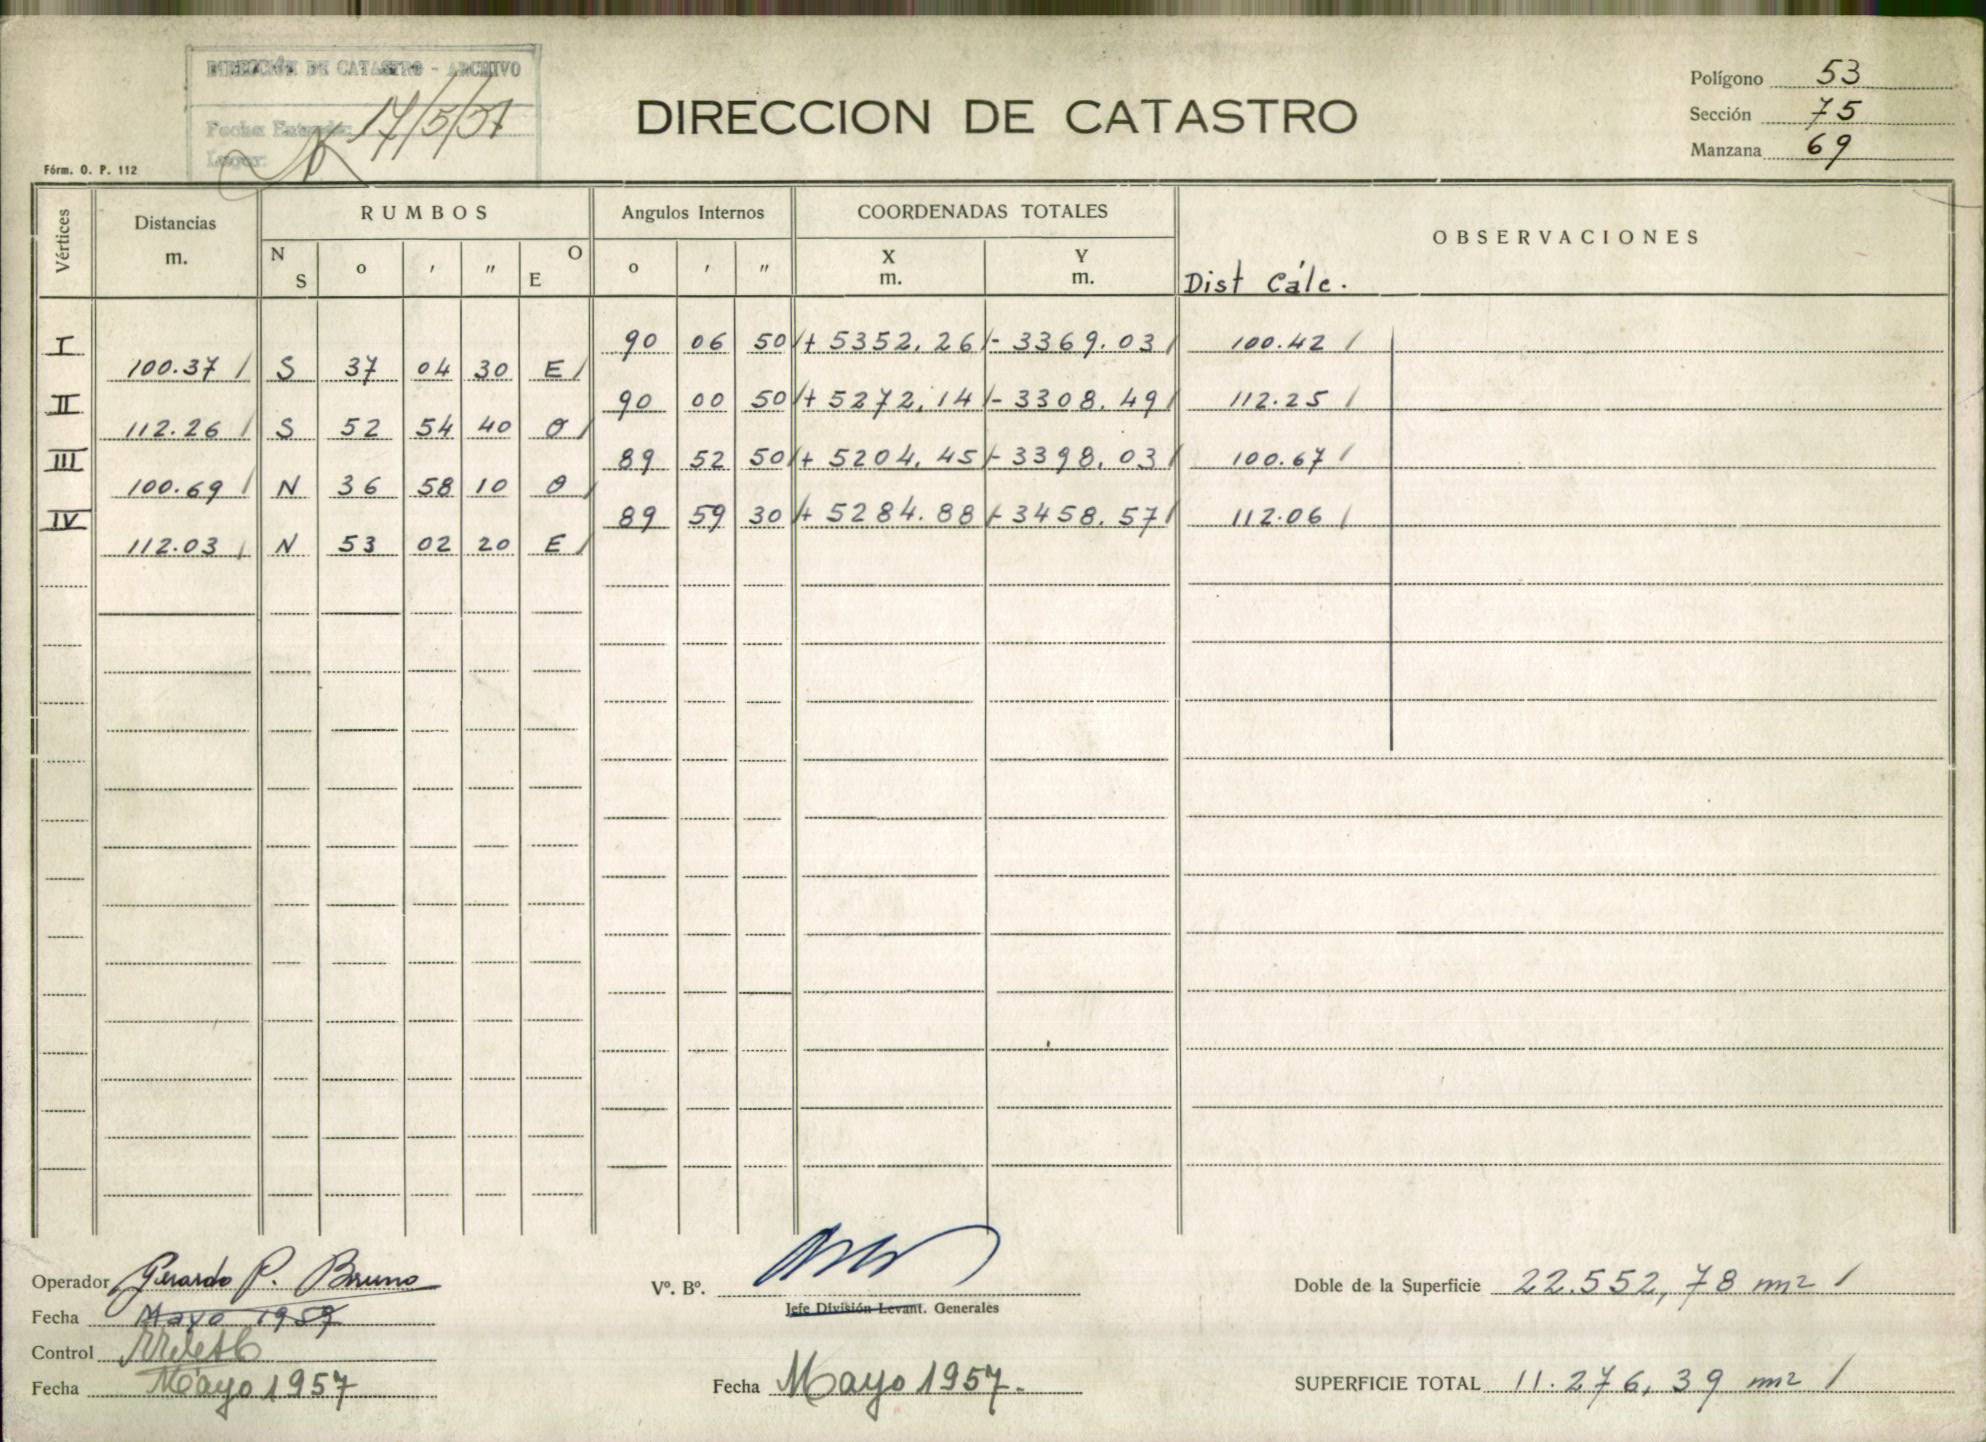 DIRECCIÓN DE CATASTRO - ARCHIVO
Fecha Entrada: 17/5/57
Legajo:
DIRECCION DE CATASTRO
Polígono 53
Sección 75
Manzana 69
Fórm. O. P. 112
Vértices Distancias m. RUMBOS Angulos Internos COORDENADAS TOTALES OBSERVACIONES
N S o ' " O E o ' " X m. Y m. Dist Cálc.
I 90 06 50 + 5352,26 - 3369.03 100.42
100.37 S 37 04 30 E
II 90 00 50 + 5272,14 - 3308.49 112.25
112.26 S 52 54 40 O
III 89 52 50 + 5204,45 - 3398,03 100.67
100.69 N 36 58 10 O
IV 89 59 30 + 5284.88 - 3458.57 112.06
112.03 N 53 02 20 E
Operador Gerardo P. Bruno
Fecha Mayo 1957
Control
Fecha Mayo 1957
Vº. Bº.
Jefe División Levant. Generales
Fecha Mayo 1957.
Doble de la Superficie 22.552,78 m2
SUPERFICIE TOTAL 11.276,39 m2